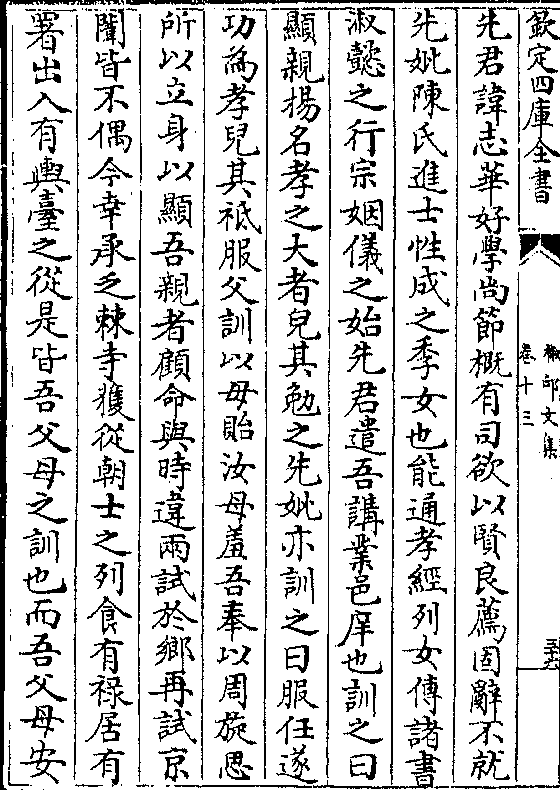 欽定四庫全書
卷十三
先君諱志華好學尚節概有司欲以賢良薦固辭不就
先妣陳氏進士性成之季女也能通孝經列女傳諸書
淑懿之行宗姻儀之始先君遣吾講業邑庠也訓之曰
顯親揚名孝之大者兒其勉之先妣亦訓之曰服任遂
功爲孝兒其祇服父訓以毋貽汝母羞吾奉以周旋思
所以立身以顯吾親者顧命與時違兩試於鄉再試京
闈皆不偶今幸承乏棘寺獲從朝士之列食有祿居有
署出入有輿臺之從是皆吾父母之訓也而吾父母安